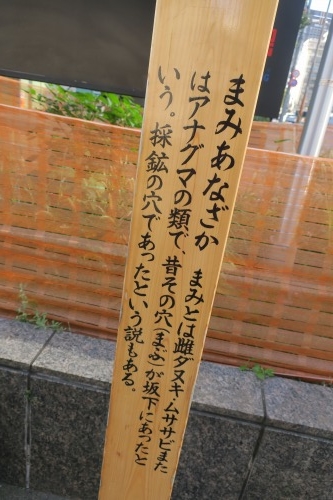 まみあなざか　まみとは雌ダヌキ・ムササビまた
はアナグマの類で、昔その穴(まぶ)が坂下にあったと
いう。採鉱の穴であったという説もある。